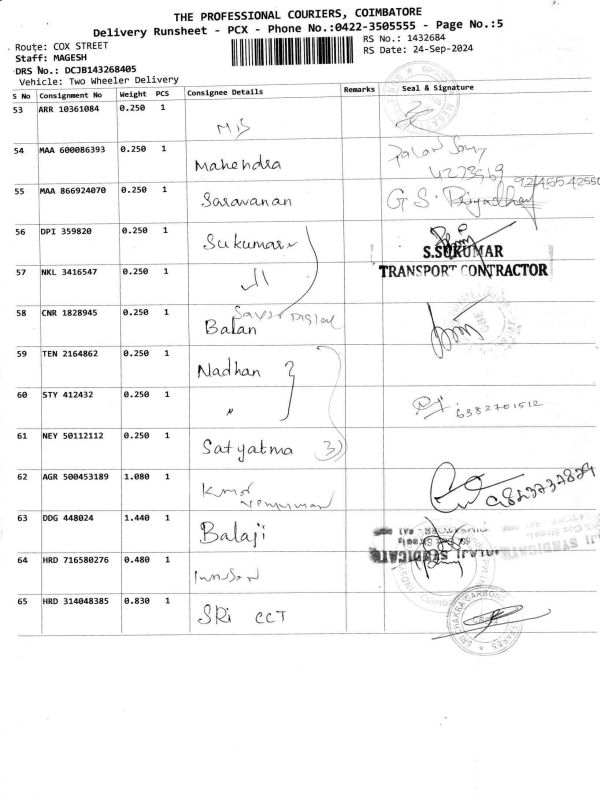 THE PROFESSIONAL COURIERS, COIMBATORE
Delivery Runsheet - PCX - Phone No.:0422-3505555 - Page No.:5
Route: COX STREET
RS No.: 1432684
Staff: MAGESH
RS Date: 24-Sep-2024
DRS No.: DCJB143268405
Vehicle: Two Wheeler Delivery
S No Consignment No Weight PCS Consignee Details Remarks Seal & Signature
53 ARR 10361084 0.250 1
54 MAA 600086393 0.250 1 Mahendra
55 MAA 866924070 0.250 1 Saravanan G S.
56 DPI 359820 0.250 1 Sukumar
S.SUKUMAR
TRANSPORT CONTRACTOR
57 NKL 3416547 0.250 1
58 CNR 1828945 0.250 1 Balan
59 TEN 2164862 0.250 1 Nadhan
60 STY 412432 0.250 1 " 6382701512
61 NEY 50112112 0.250 1 Satyatma 3
62 AGR 500453189 1.080 1 Kumar
63 DDG 448024 1.440 1 Balaji
64 HRD 716580276 0.480 1
65 HRD 314048385 0.830 1 SRi CCT